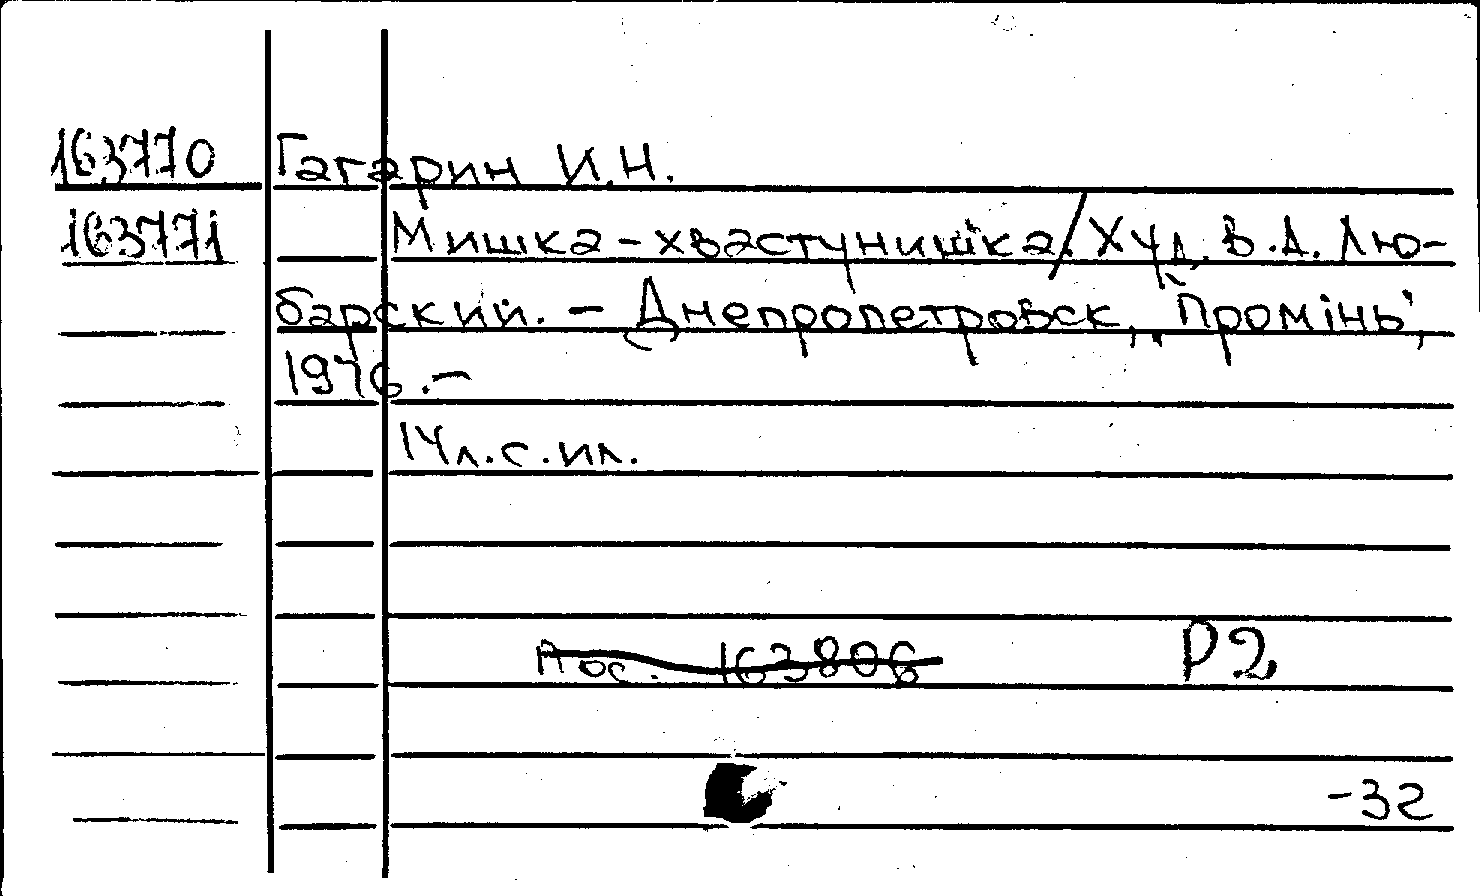 163770 Гагарин И.Н.
163771 Мишка-хвастунишка./Худ. В.А. Лю-
барский. - Днепропетровск, „Промінь",
1976.-
14л.с.ил.
Пос. 163806 Р2
-32